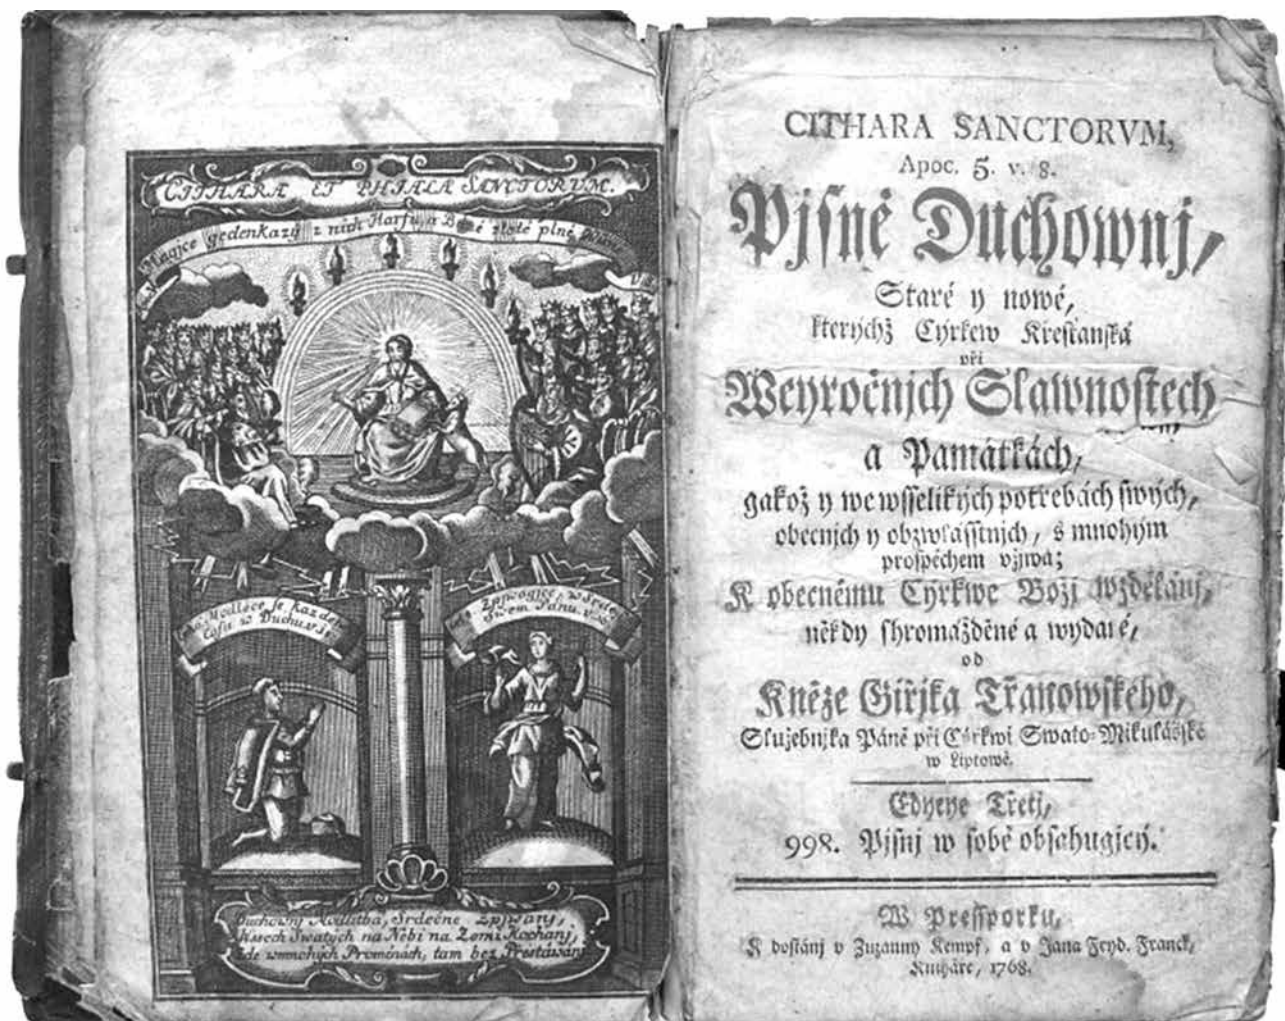 CITHARÆ ET PHIALÆ SANCTORUM.
Magice gedenkazÿ z nich Harfu, a Baně zlaté plné
Modlece se každeho
Času w Duchu. v. 18.
Zpjwagjce, w Srdcy
Swem Pánu. v. 19.
Duchownj Modlitba, Srdečne Zpjwanj,
Wssech Swatých na Nebi na Zemi Kochanj,
Zde wmnohých Proměnách, tam bez Přestáwánj
CITHARA SANCTORVM,
Apoc. 5. v. 8.
Pjſně Duchownj,
Staré y nowé,
kterychž Cýrkew Kreſťanſká
při
Weyročnjch Slawnoſtech
a Památkách,
gakož y we wſſelikých potřebách ſwých,
obecnjch y obzwláſſtnjch, s mnohým
proſpěchem vžjwá;
K obecnému Cýrkwe Božj wzdělánj,
někdy ſhromážděné a wydané,
od
Kněze Giřjka Třanowſkého,
Služebnjka Páně při Cýrkwi Swato-Mikuláſſſké
w Liptowě.
Edycye Třetj,
998. Pjſnj w ſobě obſahugjcý.
W Preſſporku,
K doſtánj v Zuzanny Kempf, a v Jana Fryd. Franck,
Knihaře, 1768.